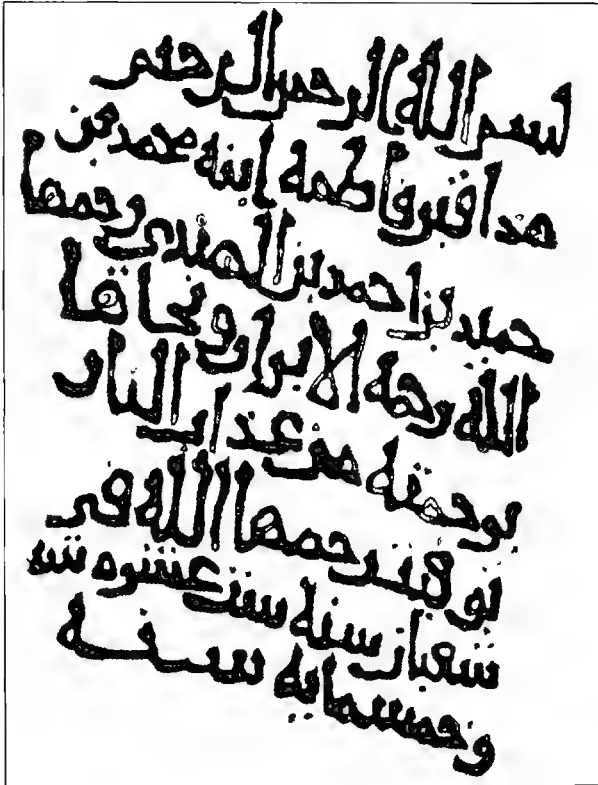 بسم الله الرحمن الرحيم
هذا قبر فاطمة ابنة محمد بن
حميد بن احمد بن رحمها
الله رحمة الابرار ونجاها
برحمته من عذاب النار
توفيت رحمها الله في
شعبان سنة ست عشره
وخمسماية سنة